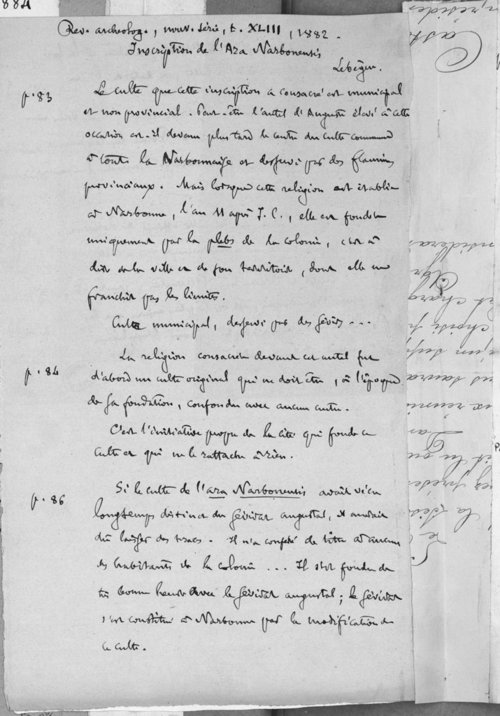 884
Rev. archéolog., nouv. série, t. XLIII, 1882.
Inscription de l'Ara Narbonensis
Lebègue.
p. 83
Le culte que cette inscription a consacré est municipal
et non provincial. Peut-être l'autel d'Auguste élevé à cette
occasion est-il devenu plus tard le centre du culte commun
à toute la Narbonnaise et desservi par des flamines
provinciaux. Mais lorsque cette religion est établie
à Narbonne, l'an 11 après J. C., elle est fondée
uniquement par la plebs de la colonie, c'est à
dire de la ville et de son territoire, dont elle ne
franchit pas les limites.
Culte municipal, desservi par des sévirs ...
p. 84
La religion consacrée devant cet autel fut
d'abord un culte original qui ne doit être, à l'époque
de sa fondation, confondu avec aucun autre.
C'est l'initiative propre de la cité qui fonde ce
culte et qui ne le rattache à rien.
p. 86
Si le culte de l'ara Narbonensis avait vécu
longtemps distinct du sévirat augustal, il aurait
dû laisser des traces. Il n'a conféré de titre à aucun
des habitants de la colonie ... Il s'est fondu de
très bonne heure avec le sévirat augustal; le sévirat
s'est constitué à Narbonne par la modification de
ce culte.